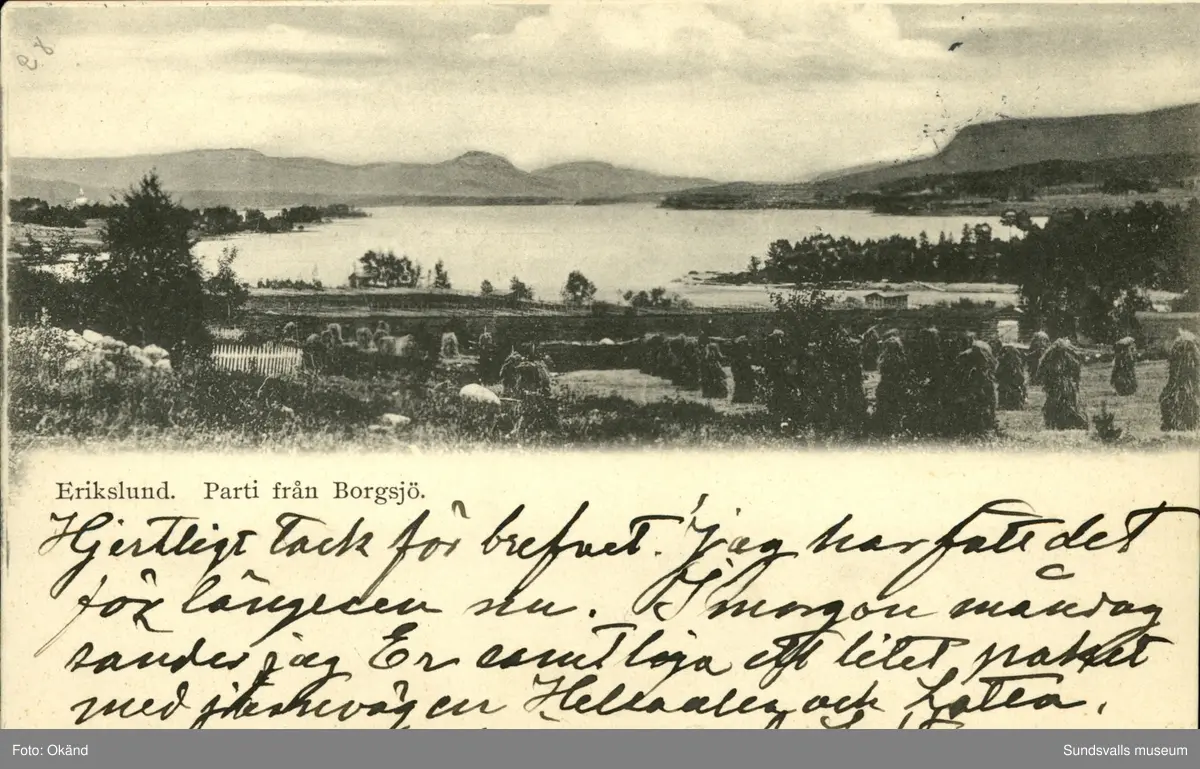 28
Erikslund. Parti från Borgsjö.
Hjertligt tack för brefvet. Jag har fått det
för längesen nu. I morgon måndag
sänder jag Er samtliga ett litet paket
med jernvägen Helsa alla och
Foto: Okänd
Sundsvalls museum